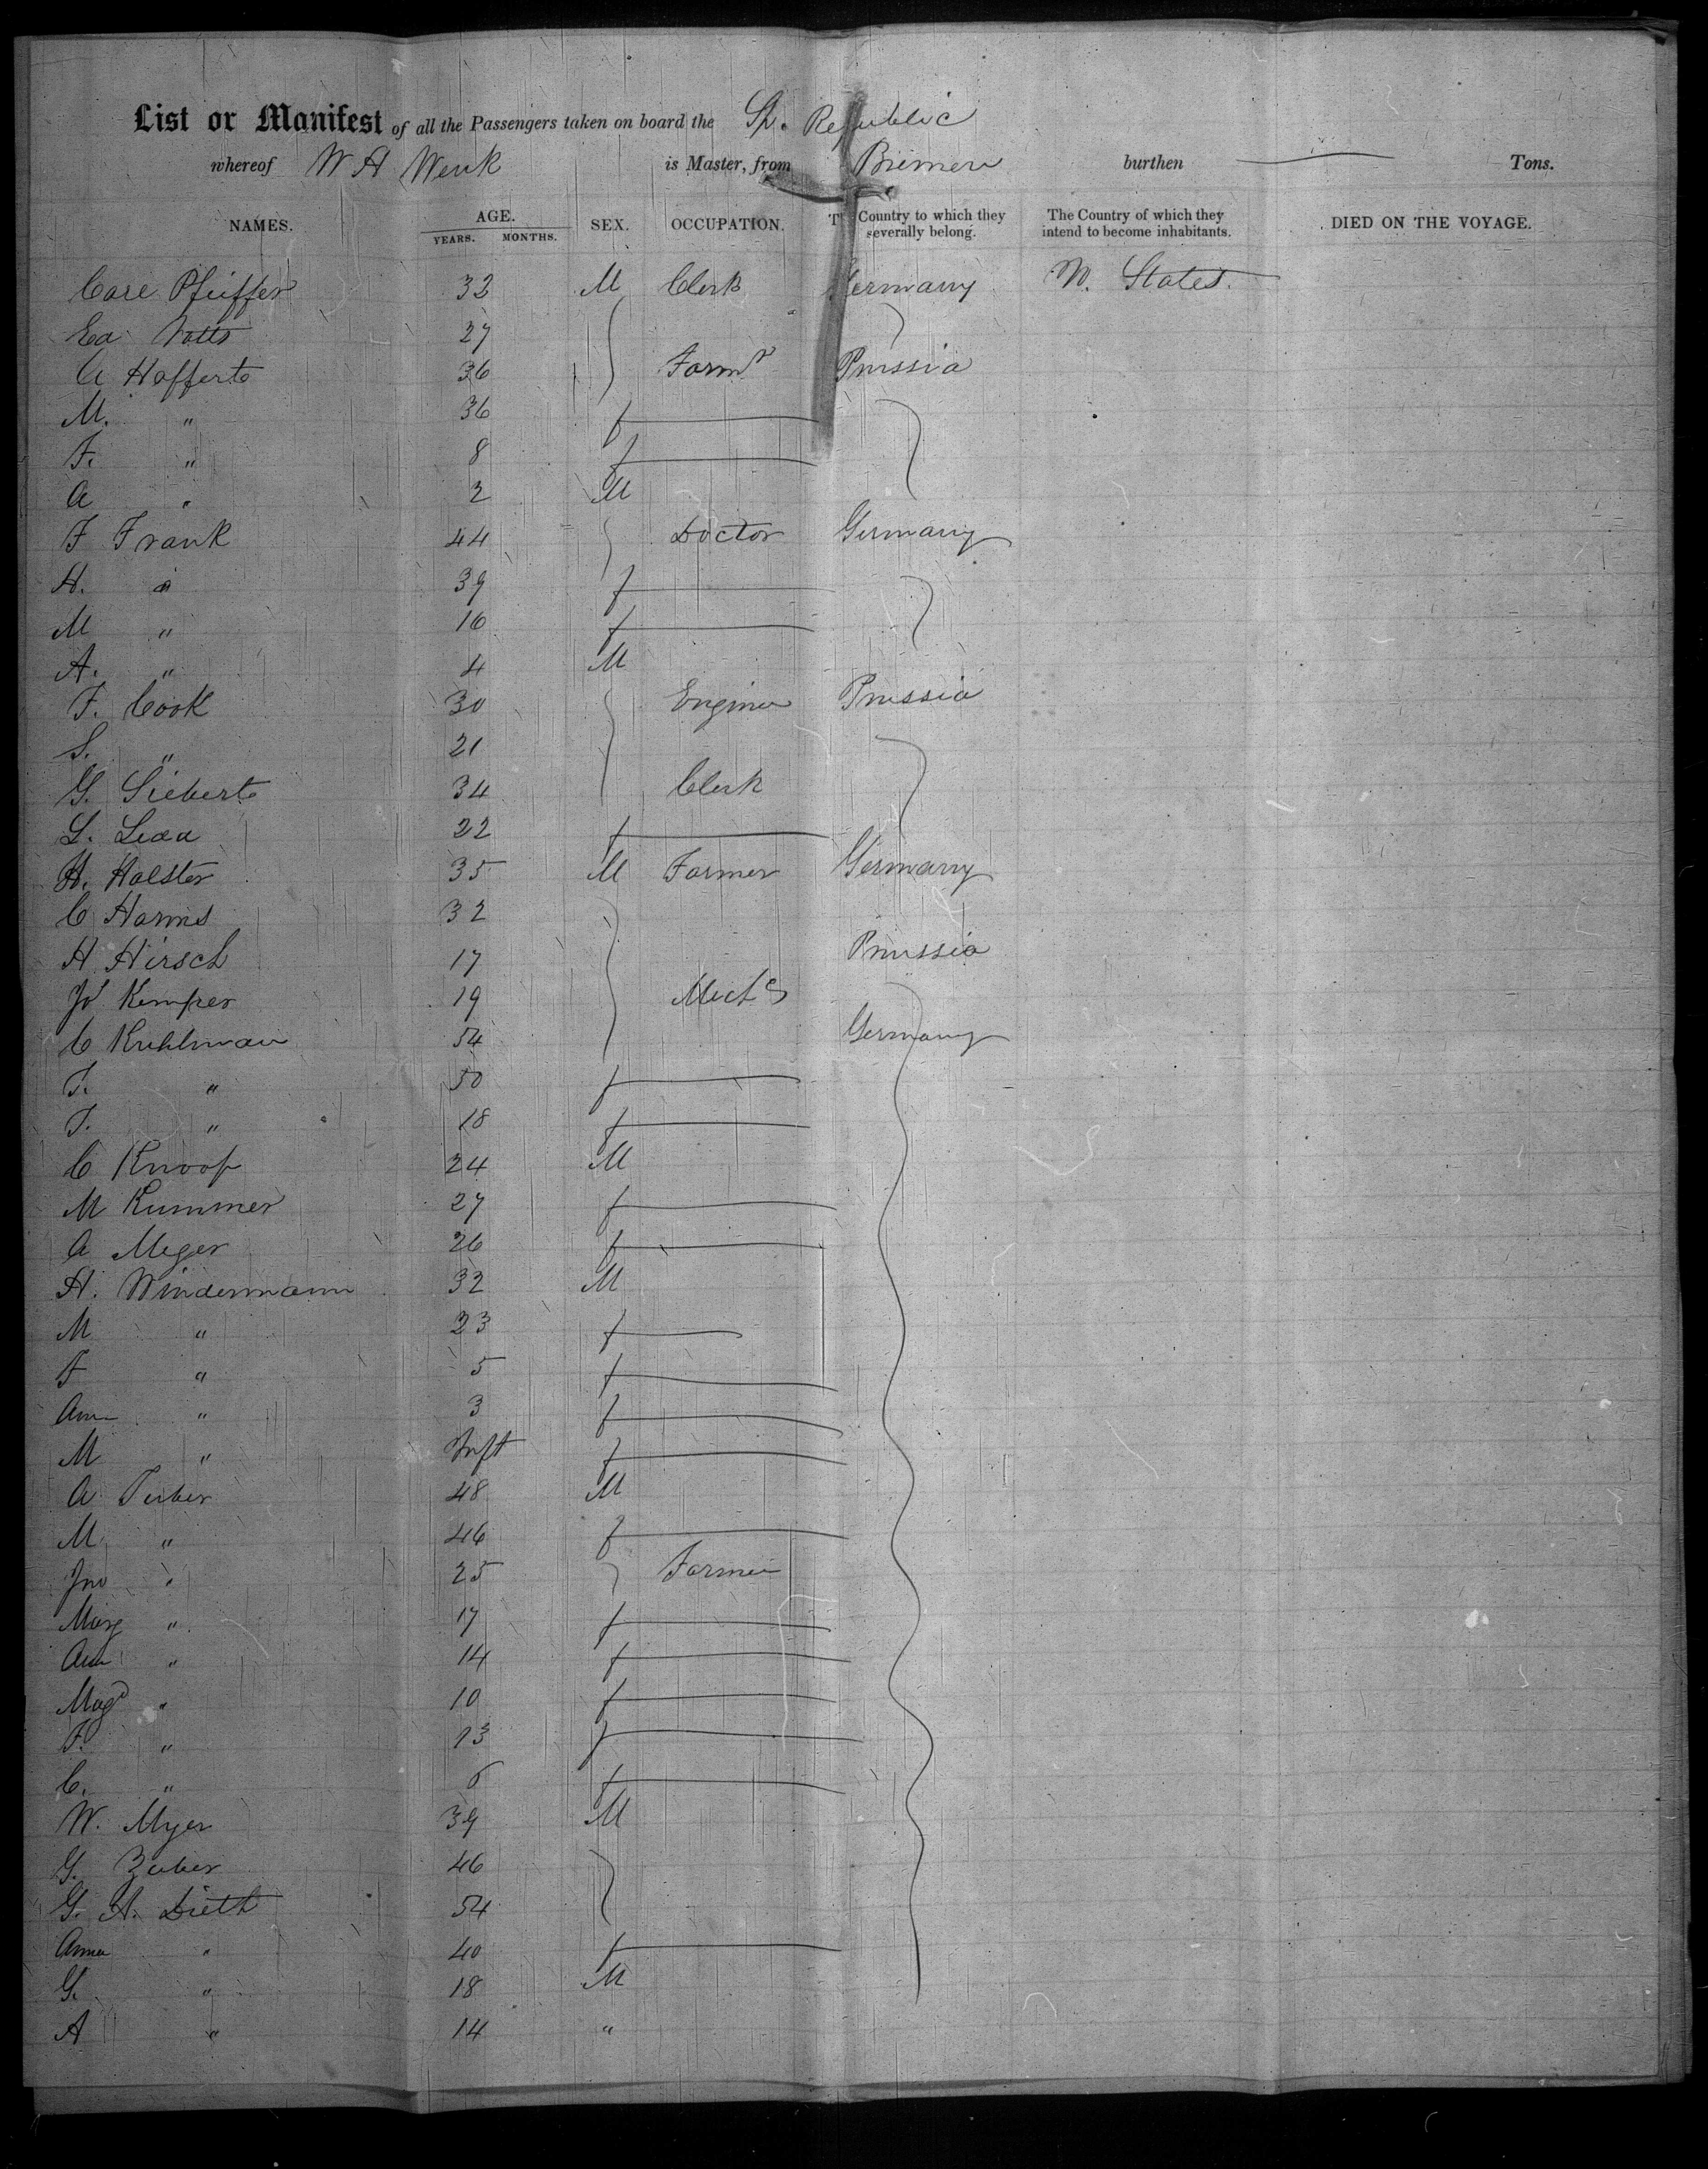 List or Manifest of all the Passengers taken on board the Sp. Republic
whereof W A Wenk is Master, from Bremen burthen Tons.
NAMES. AGE. YEARS. MONTHS. SEX. OCCUPATION. Country to which they severally belong. The Country of which they intend to become inhabitants. DIED ON THE VOYAGE.
Carl Pfeiffer 32 M Clerk Germany States.
Ed 27
A Hafferts 36 Farmr Prussia
M. " 36 f
F. " 8 f
A " 2 M
F Frank 44 Doctor Germany
H. " 39 f
M " 16 f
A. " 4 M
F. Cook 30 Engineer Prussia
S. " 21
G. Sieberts 34 Clerk
L. 22 f
H. Holster 35 M Farmer Germany
C Harms 32
H Hirsch 17 Prussia
Kemper 19
C Kuhlman 54 Germany
T. " 50 f
T. " 18 f
C Knoop 24 M
M Kummer 27 f
A Meger 26 f
H. Windermann 32 M
M " 23 f
F " 5 f
Ann " 3 f
M " Inft f
A Tuber 48 M
M " 46 f
Jno " 25 Farmer
Marg " 17 f
Ann " 14 f
Magd " 10 f
F. " 13 f
C. " 6 f
W. Myer 39 M
G. Zuber 46
G. A. Dieth 54
Anna " 40 f
G. " 18 M
A " 14 "